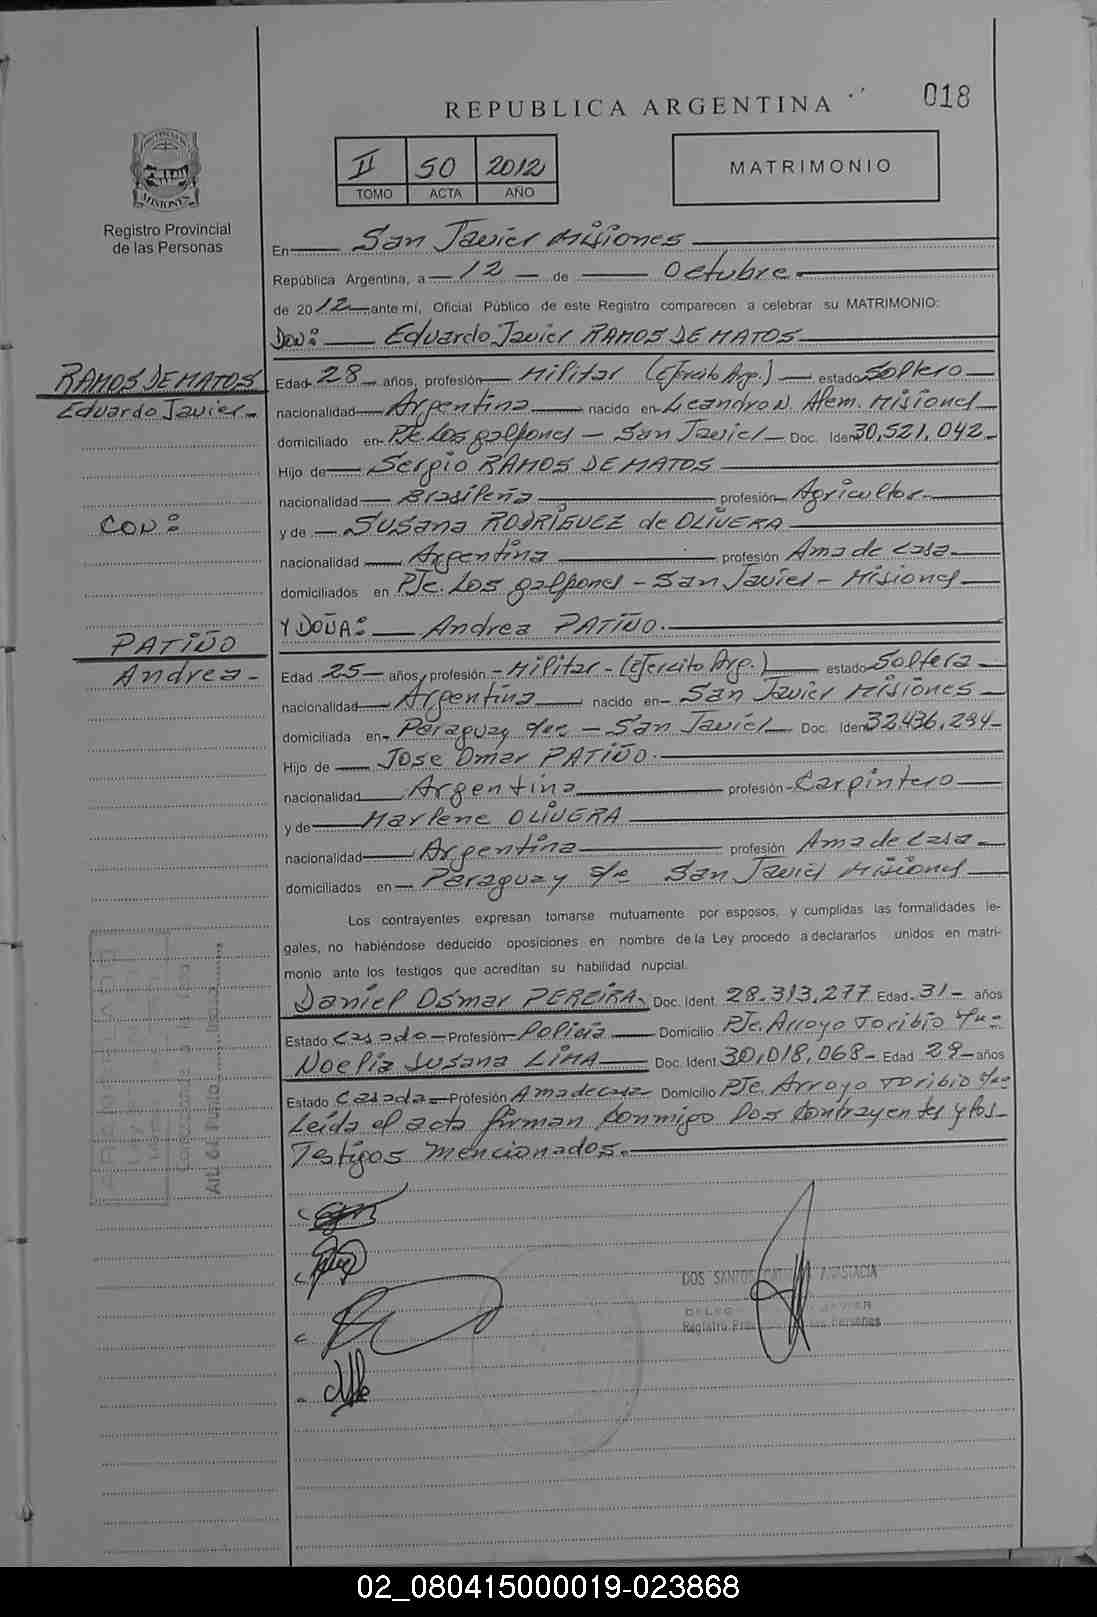 018
REPUBLICA ARGENTINA
II 50 2012
TOMO ACTA AÑO
MATRIMONIO
MISIONES
Registro Provincial
de las Personas
En San Javier Misiones
República Argentina, a 12 de Octubre
de 2012 ante mí, Oficial Público de este Registro comparecen a celebrar su MATRIMONIO:
DON: Eduardo Javier RAMOS DE MATOS
RAMOS DE MATOS
Eduardo Javier
Edad 28 años, profesión Militar (Ejército Arg.) estado Soltero
nacionalidad Argentina nacido en Leandro N. Alem. Misiones
domiciliado en PJe. Los galpones - San Javier Doc. Iden 30,521,042
Hijo de Sergio RAMOS DE MATOS
nacionalidad Brasileña profesión Agricultor
CON:
y de Susana RODRÍGUEZ de OLIVERA
nacionalidad Argentina profesión Ama de casa
domiciliados en PJe. Los galpones - San Javier - Misiones
Y DOÑA: Andrea PATIÑO.
PATIÑO
Andrea
Edad 25 años, profesión Militar - (Ejercito Arg.) estado Soltera
nacionalidad Argentina nacido en San Javier Misiones
domiciliada en Paraguay s/n - San Javier Doc. Iden 32,436,294
Hijo de Jose Omar PATIÑO.
nacionalidad Argentina profesión Carpintero
y de Marlene OLIVERA
nacionalidad Argentina profesión Ama de casa
domiciliados en Paraguay s/n San Javier Misiones
Los contrayentes expresan tomarse mutuamente por esposos, y cumplidas las formalidades le-
gales, no habiéndose deducido oposiciones en nombre de la Ley procedo a declararlos unidos en matri-
monio ante los testigos que acreditan su habilidad nupcial.
Daniel Osmar PEREIRA Doc. Ident. 28.313,277 Edad 31 años
Estado Casado Profesión Policía Domicilio PJe. Arroyo Toribio s/n
Noelia Susana LIMA Doc. Ident. 30,018,068 Edad 29 años
Estado Casada Profesión Ama de casa Domicilio PJe. Arroyo Toribio s/n
Leída el acta firman conmigo los contrayentes y los
Testigos mencionados.
Art. 64 Punto
DOS SANTOS ANASTACIA
Registro
02_080415000019-023868